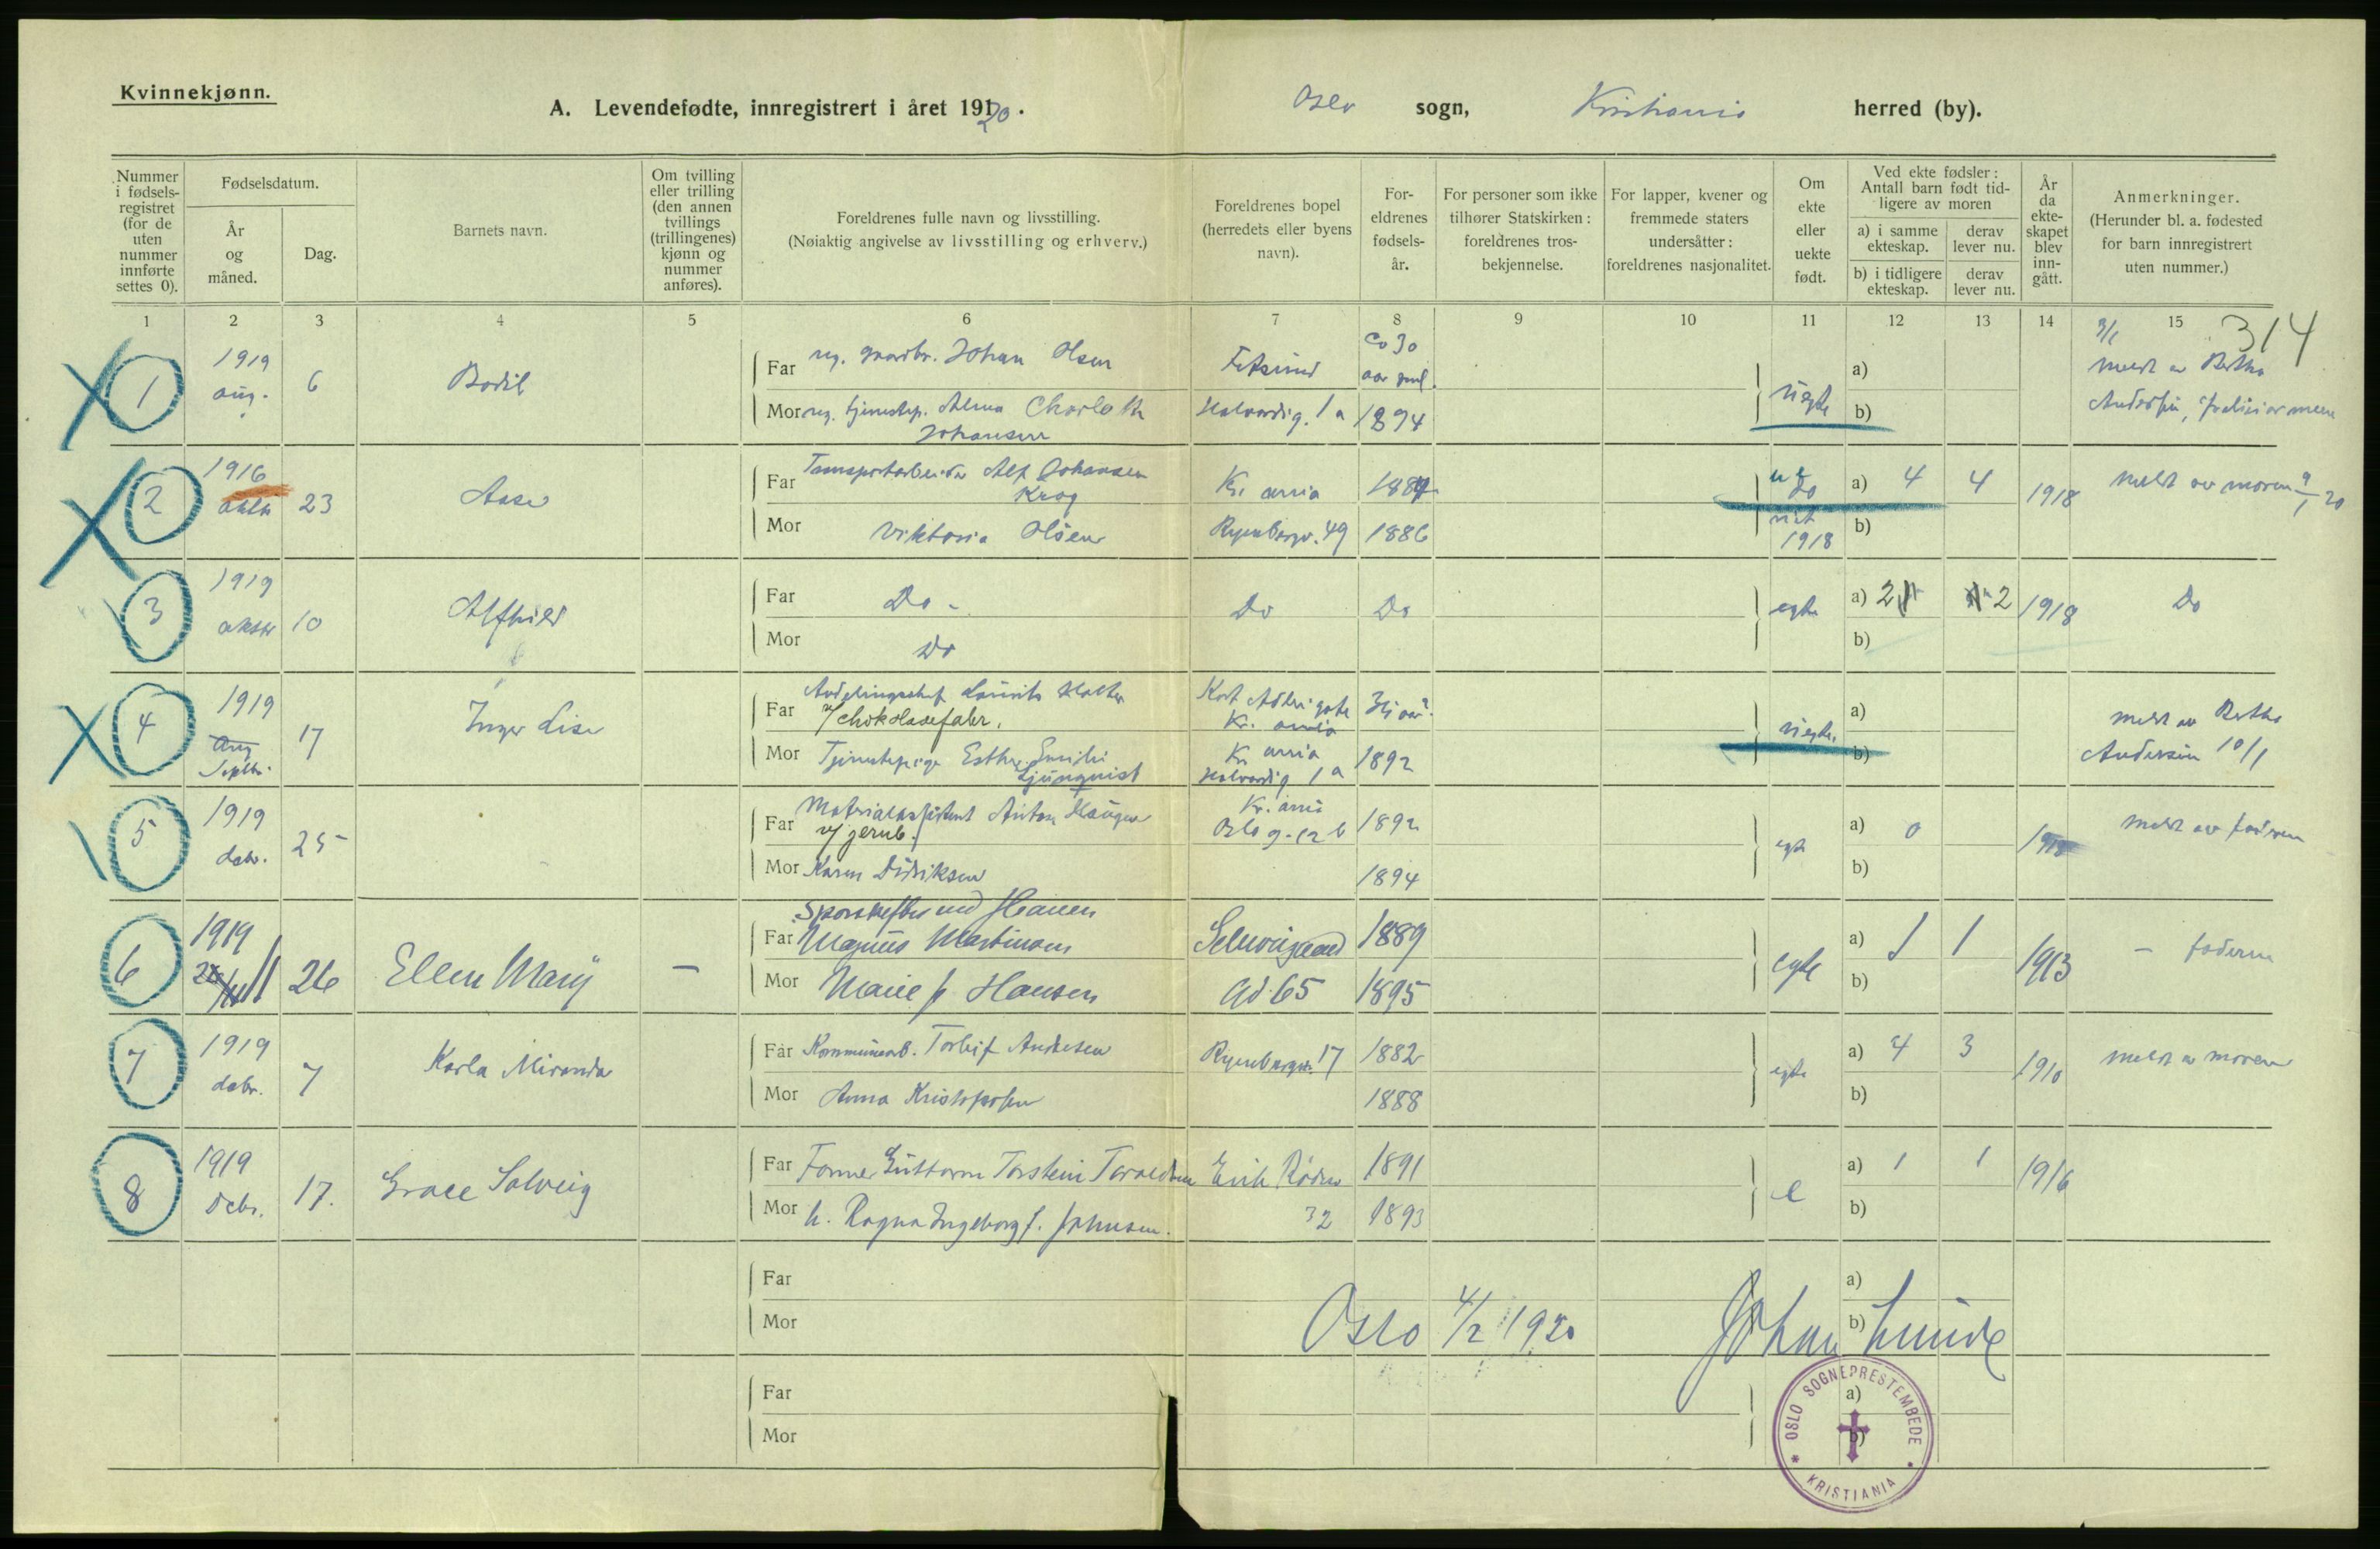 Kvinnekjønn.
A. Levendefødte, innregistrert i året 1920.
Oslo sogn, Kristiania herred (by).
Nummer i fødsels-registret (for de uten nummer innførte settes 0).
Fødselsdatum.
År og måned.
Dag.
Barnets navn.
Om tvilling eller trilling (den annen tvillings (trillingenes) kjønn og nummer anføres).
Foreldrenes fulle navn og livsstilling.
(Nøiaktig angivelse av livsstilling og erhverv.)
Foreldrenes bopel (herredets eller byens navn).
For-eldrenes fødsels-år.
For personer som ikke tilhører Statskirken: foreldrenes tros-bekjennelse.
For lapper, kvener og fremmede staters undersåtter: foreldrenes nasjonalitet.
Om ekte eller uekte født.
Ved ekte fødsler: Antall barn født tid-ligere av moren
a) i samme ekteskap.
derav lever nu.
b) i tidligere ekteskap.
derav lever nu.
År da ekte-skapet blev inn-gått.
Anmerkninger.
(Herunder bl. a. fødested for barn innregistrert uten nummer.)
1 2 3 4 5 6 7 8 9 10 11 12 13 14 15
314
1 1919 aug. 6 Bodil
Far Johan Olsen
Fetsund
Co 30 aar gml.
Mor Alma Charlotte Johansen
Halvardsg. 1 a 1894
uegte
a)
b)
meldt av Bertha Andersen,
2 1916 oktbr 23 Aase
Far Transportarbeider Alf Johansen Krog
Kr. ania
Mor Viktoria Olsen
Ryenbergv. 49 1886
1918
a) 4 4 1918
b)
meldt av moren 9/1 20
3 1919 oktbr 10 Alfhild
Far Do -
Mor Do
Do Do
egte
a) 2 2 1918
b)
Do
4 1919 Aug Septbr. 17 Inger Lise
Far Avdelingschef Laurits Holter v/ Chokoladefabr.
Kort Adelers gate Kr. ania
Mor Tjenestepige Esther Emilie Ljungquist
Kr. ania Halvardsg 1 a 1892
uegte
a)
b)
meldt av Bertha Andersen 10/1
5 1919 debr. 25
Far Materialassistent Anton Haugen v/ jernb.
Kr. ania Oslo g. 12 b 1892
Mor Karen Didriksen
1894
egte
a) 0
b)
meldt av faderen
6 1919 26 Ellen Mary -
Far Magnus Martinsen
1889
Mor Marie f. Hansen
Gd 65 1895
egte
a) 1 1 1913
b)
- faderen
7 1919 debr. 7 Karla Miranda
Far Kommunearb. Torleif Andresen
Ryenbergv. 17 1882
Mor Anna Kristofersen
1888
egte
a) 4 3 1910
b)
meldt av moren
8 1919 Debr. 17. Grace Solveig
Far Former Guttorm Torstein Toraldsen
1891
Mor h. Ragna Ingeborg f. Johnsen.
32 1893
e
a) 1 1 1916
b)
Far
Mor
a)
b)
Oslo 4/2 1920 Johan Lunde
Far
Mor
a)
b)
OSLO SOGNEPRESTEMBEDE
KRISTIANIA